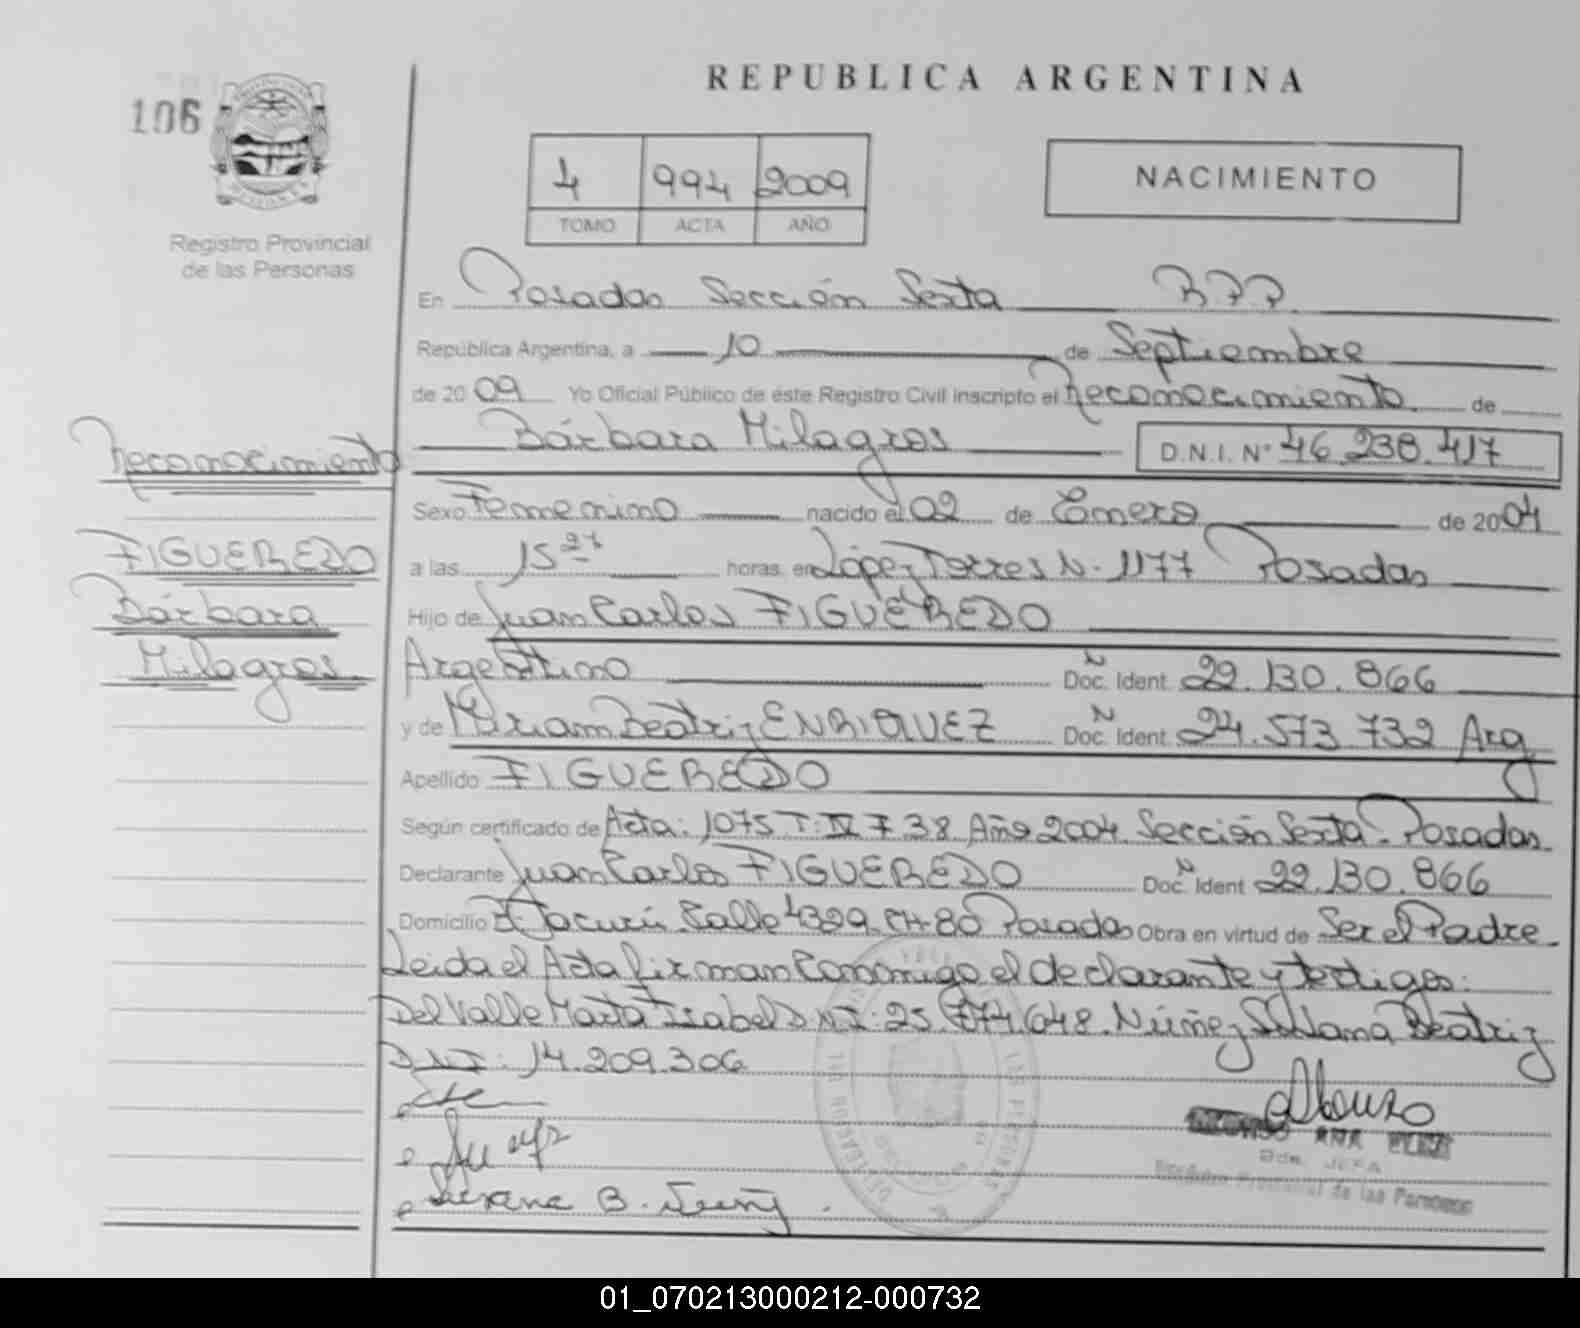 REPUBLICA ARGENTINA
106
4 994 2009
TOMO ACTA AÑO
NACIMIENTO
Registro Provincial
de las Personas
En Posadas Sección Sexta R.P.P.
República Argentina, a 10 de Septiembre
de 2009 Yo Oficial Público de éste Registro Civil inscripto el Reconocimiento de
Bárbara Milagros D.N.I. N° 46.238.417
Reconocimiento
FIGUEREDO
Bárbara
Milagros
Sexo Femenino nacido el 02 de Enero de 2004
a las 15 27 horas en López Torres N. 1177 Posadas
Hijo de Juan Carlos FIGUEREDO
Argentino Doc. Ident. 22.130.866
y de Miriam Beatriz ENRIQUEZ Doc. Ident. 24.573.732 Arg
Apellido FIGUEREDO
Según certificado de Acta: 1075 T: IV F 38 Año 2004 Sección Sexta. Posadas
Declarante Juan Carlos FIGUEREDO Doc. Ident 22.130.866
Domicilio Bº Yacuru Calle 4329 CH 80 Posadas Obra en virtud de Ser el Padre
Leida el Acta firman Conmigo el declarante y testigos:
Del Valle Marta Isabel DNI: 25.774.648. Núñez Susana Beatriz
DNI: 14.209.306
Susana B. Nuñez
ANA
Jefa
Registro Provincial de las Personas
01_070213000212-000732